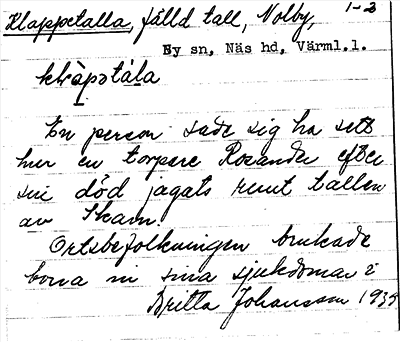 Klappetalla, fälld tall, Nolby, 1-3
By sn, Näs hd, Värml.l.
En person sade sig ha sett
hur en torpare Rosander efter
sin död jagats runt tallen
av Skam.
Ortsbefolkningen brukade
borra in sina sjukdomar i
Britta Johansson 1935